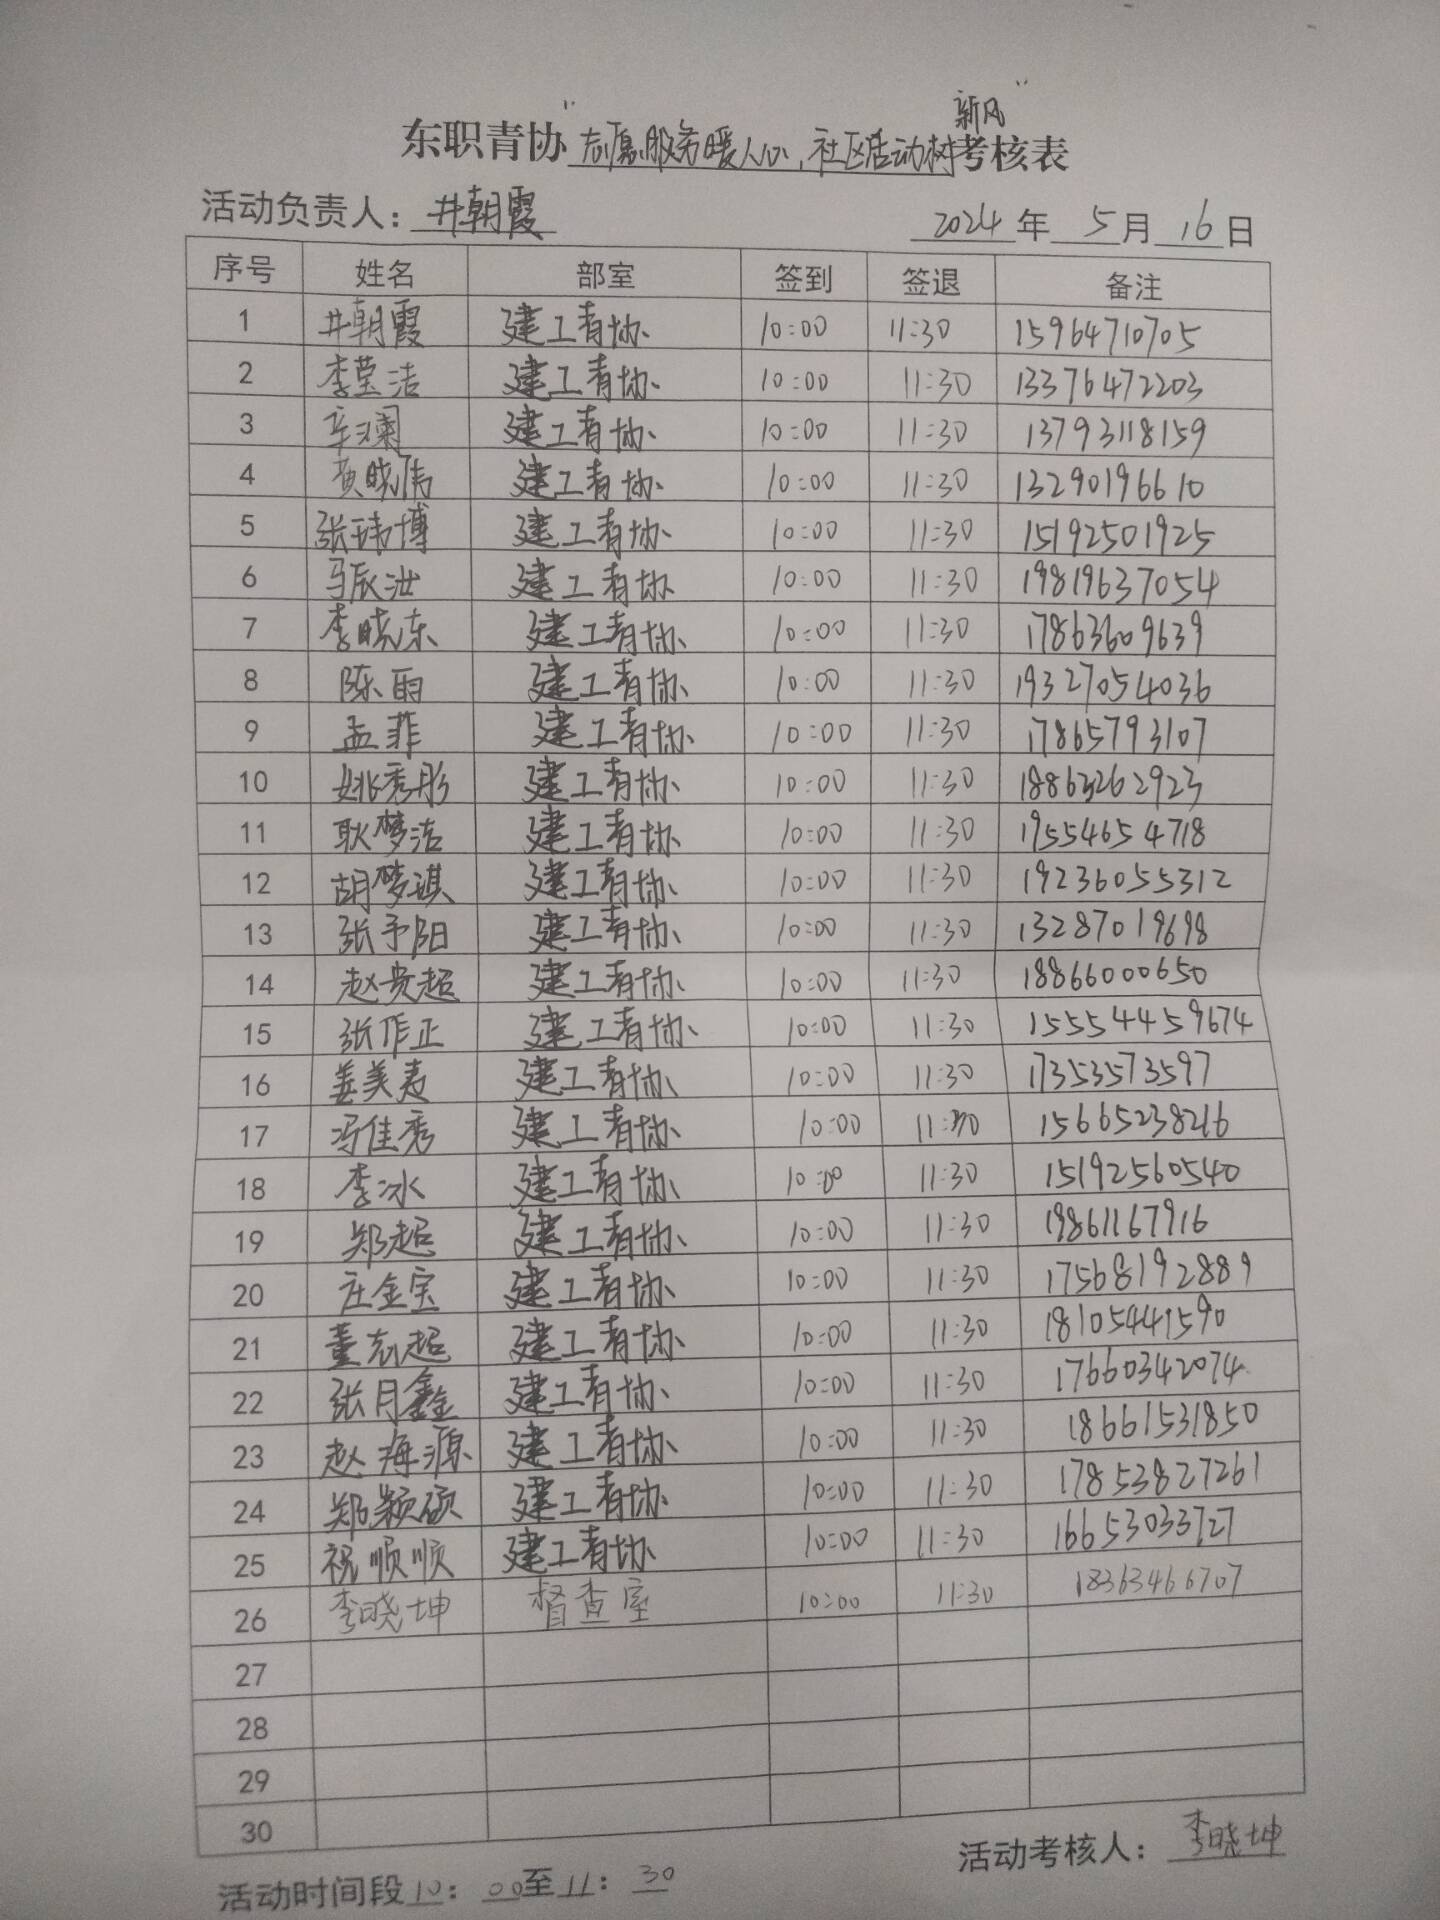 东职青协"志愿服务暖人心,社区活动树新风"考核表
活动负责人: 井朝霞 2024年5月16日
序号 姓名 部室 签到 签退 备注
1 井朝霞 建工青协 10:00 11:30 15964710705
2 李莹洁 建工青协 10:00 11:30 13376472203
3 辛澜 建工青协 10:00 11:30 13793118159
4 黄晓伟 建工青协 10:00 11:30 13290196610
5 张玮博 建工青协 10:00 11:30 15192501925
6 马辰 建工青协 10:00 11:30 19819637054
7 李晓东 建工青协 10:00 11:30 17863609639
8 陈雨 建工青协 10:00 11:30 19327054036
9 孟菲 建工青协 10:00 11:30 17865793107
10 姚秀彤 建工青协 10:00 11:30 18863262923
11 耿梦洁 建工青协 10:00 11:30 19554654718
12 胡梦琪 建工青协 10:00 11:30 19236055312
13 张予阳 建工青协 10:00 11:30 13287019698
14 赵贵超 建工青协 10:00 11:30 18866000650
15 张作正 建工青协 10:00 11:30 155544459674
16 姜美麦 建工青协 10:00 11:30 17353573597
17 冯佳秀 建工青协 10:00 11:30 15665238216
18 李冰 建工青协 10:00 11:30 15192560540
19 郑超 建工青协 10:00 11:30 19861167916
20 庄金宝 建工青协 10:00 11:30 17568192889
21 董志超 建工青协 10:00 11:30 18105441590
22 张月鑫 建工青协 10:00 11:30 17660342074
23 赵海源 建工青协 10:00 11:30 18661531850
24 郑颖硕 建工青协 10:00 11:30 17853827261
25 祝顺顺 建工青协 10:00 11:30 16653033727
26 李晓坤 督查室 10:00 11:30 18363466707
27
28
29
30
活动考核人: 李晓坤
活动时间段10:00至11:30